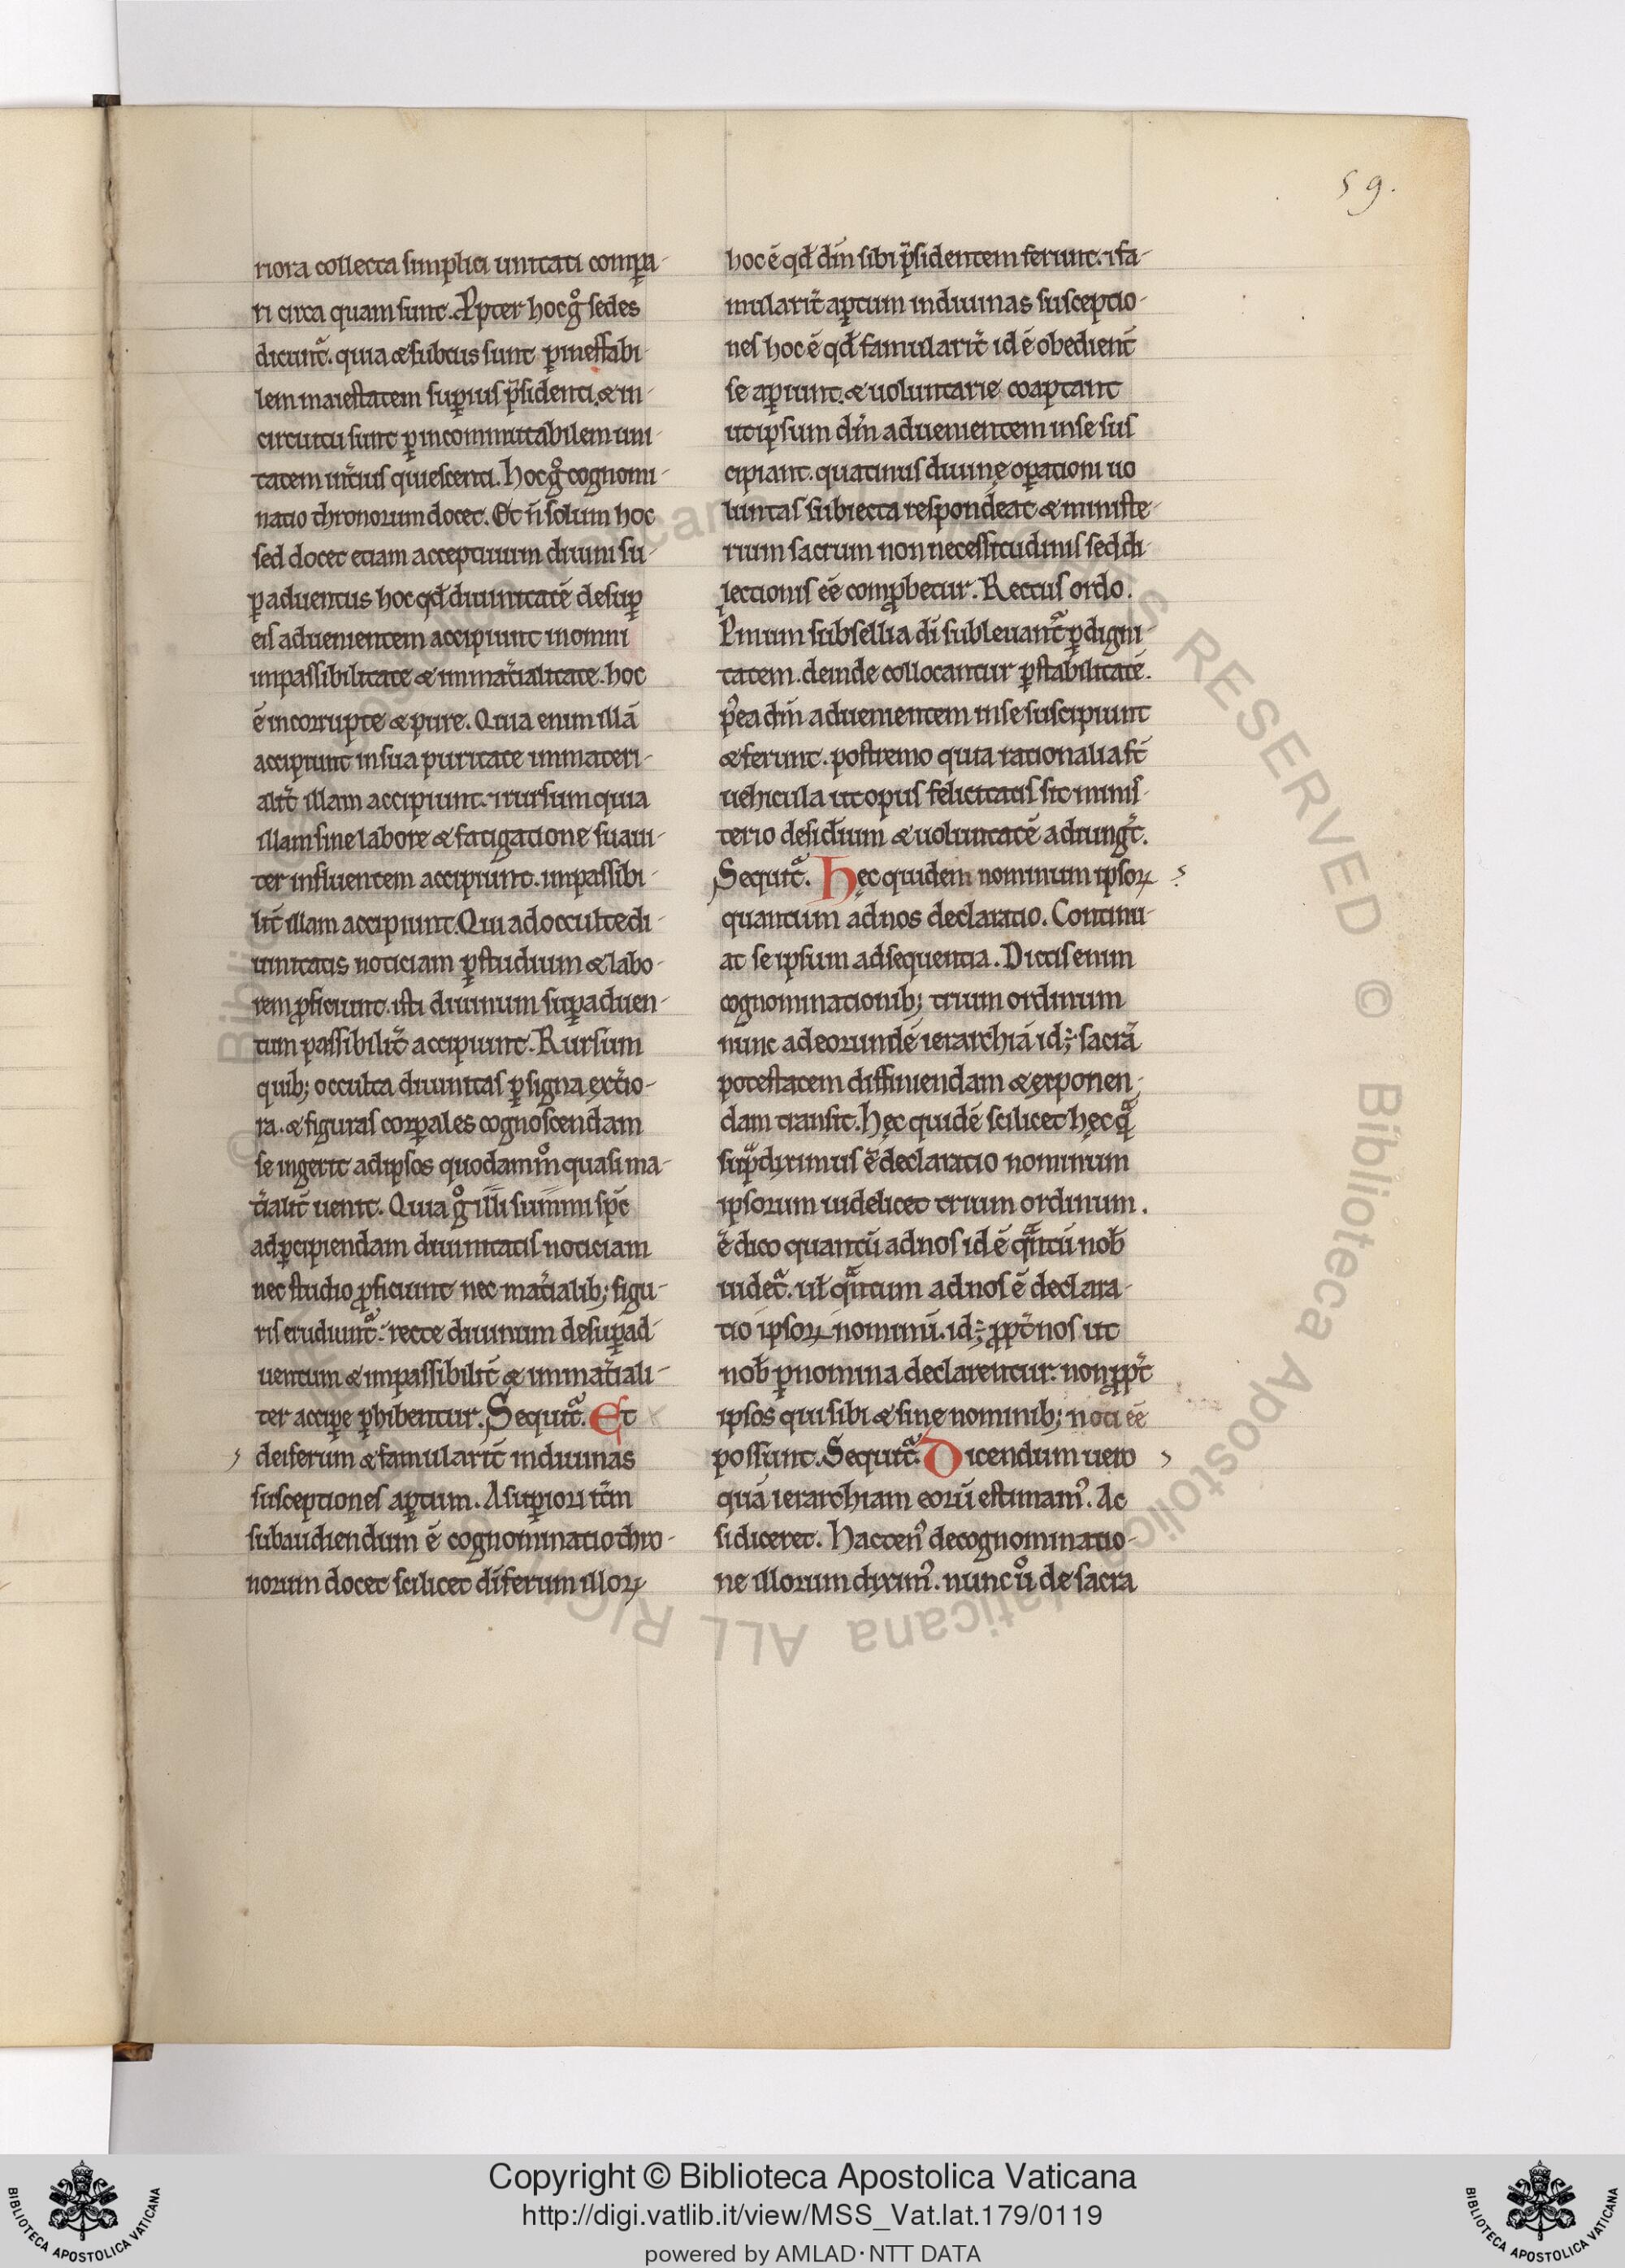 59.
riora collecta simplici unitati compa-
ri circa quam sunt. Ꝓpter hoc gͦ sedes
dicunt᷑. quia & subtus sunt ꝑ ineffabi-
lem maiestatem suꝑius p̃sidenti. & in
circuitu sunt ꝑ incommutabilem uni-
tatem int̃ius quiescenti. Hoc gͦ cognomi-
natio thronorum docet. Et ñ solum hoc
sed docet etiam acceptiuum diuini su-
ꝑ aduentus hoc qđ diuinitatē desuꝑ
eis aduenientem accipiunt in omni
impassibilitate & immat̃ialitate. hoc
ē incorrupte & pure. Quia enim illā
accipiunt in sua puritate immateri-
alit̃ illam accipiunt. & rursum quia
illam sine labore & fatigatione suaui-
ter influentem accipiunt. impassibi-
lit̃ illam accipiunt. Qui ad occulte di-
uinitatis noticiam ꝑ studium & labo-
rem ꝓficiunt. isti diuinum suꝑaduen-
tum passibilit̃ accipiunt. Rursum
quib; occulta diuinitas ꝑ signa ext̃io-
ra. & figuras corꝑales cognoscendam
se ingerit ad ipsos quodammͦ quasi ma-
t̃ialit̃ uenit. Quia gͦ illi summi spc̄
ad ꝑcipiendam diuinitatis noticiam
nec studio ꝓficiunt nec mat̃ialib; figu-
ris erudiunt᷑. recte diuinum desuꝑ ad-
uentum & impassibilit̃ & immat̃iali-
ter acciꝑe ꝑhibentur. Sequit᷑. Et
deiferum & famularit̃ in diuinas
susceptiones aꝑtum. A suꝑiori it̃m
subaudiendum ē cognominatio thro-
norum docet scilicet dīferum illoꝝ
hoc ē qđ dn̄m sibi p̃sidentem ferunt. & fa-
mularit̃ aꝑtum in diuinas susceptio-
nes hoc ē qđ famularit̃ id ē obedient̃
se aꝑiunt. & uoluntarie coaptant
ut ipsum dn̄m aduenientem in se sus
cipiant. quatinus diuinę oꝑationi uo
luntas subiecta respondeat & ministe-
rium sacrum non necessitudinis sed di-
lectionis eē comꝓbetur. Rectus ordo.
Pͥmum subsellia dī subleuant᷑ ꝑ digni-
tatem. deinde collocantur ꝑ stabilitatē.
p̾ea dn̄m aduenientem in se suscipiunt
& ferunt. postremo quia rationalia st̄
uehicula ut opus felicitatis sit minis-
terio desid̃ium & uoluntatē adiungt̃.
Sequit᷑. Hęc quidem nominum ipsoꝝ
quantum ad nos declaratio. Continu-
at se ipsum ad sequentia. Dictis enim
cognominationib; trium ordinum
nunc ad eorundē ierarchiā id ÷ sacrā
potestatem diffiniendam & exponen-
dam transit. Hęc quidē scilicet hęc qᷓ
sup̃diximus ē declaratio nominum
ipsorum uidelicet trium ordinum.
ē dico quantū ad nos id ē qᷓntū nob̄
uidet᷑. ul̄ qᷓntum ad nos ē declara-
tio ipsoꝝ nominū. id ÷ ꝓpt̃ nos ut
nob̄ ꝑ nomina declarentur. non ꝓpt̃
ipsos qui sibi & sine nominib; noti eē
possunt. Sequit᷑. Dicendum uero
quā ierarchiam eorū estimamꝰ. Ac
si diceret. Hactenꝰ de cognominatio-
ne illorum diximꝰ. nunc uͦ de sacra
Copyright © Biblioteca Apostolica Vaticana
http://digi.vatlib.it/view/MSS_Vat.lat.179/0119
powered by AMLAD·NTT DATA
BIBLIOTECA APOSTOLICA VATICANA
BIBLIOTECA APOSTOLICA VATICANA
© Biblioteca Apostolica Vaticana ALL RIGHTS RESERVED